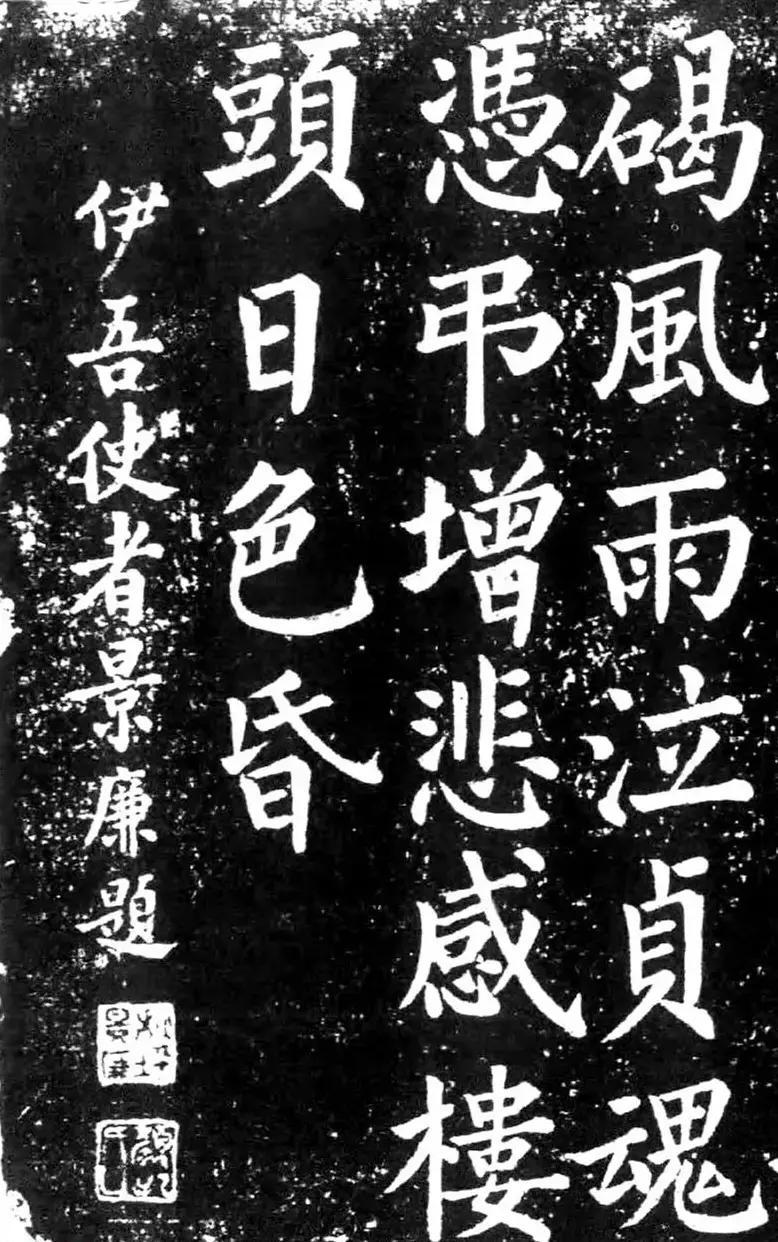 碣風雨泣貞魂
憑弔增悲感樓
頭日色昏
伊吾使者景廉題